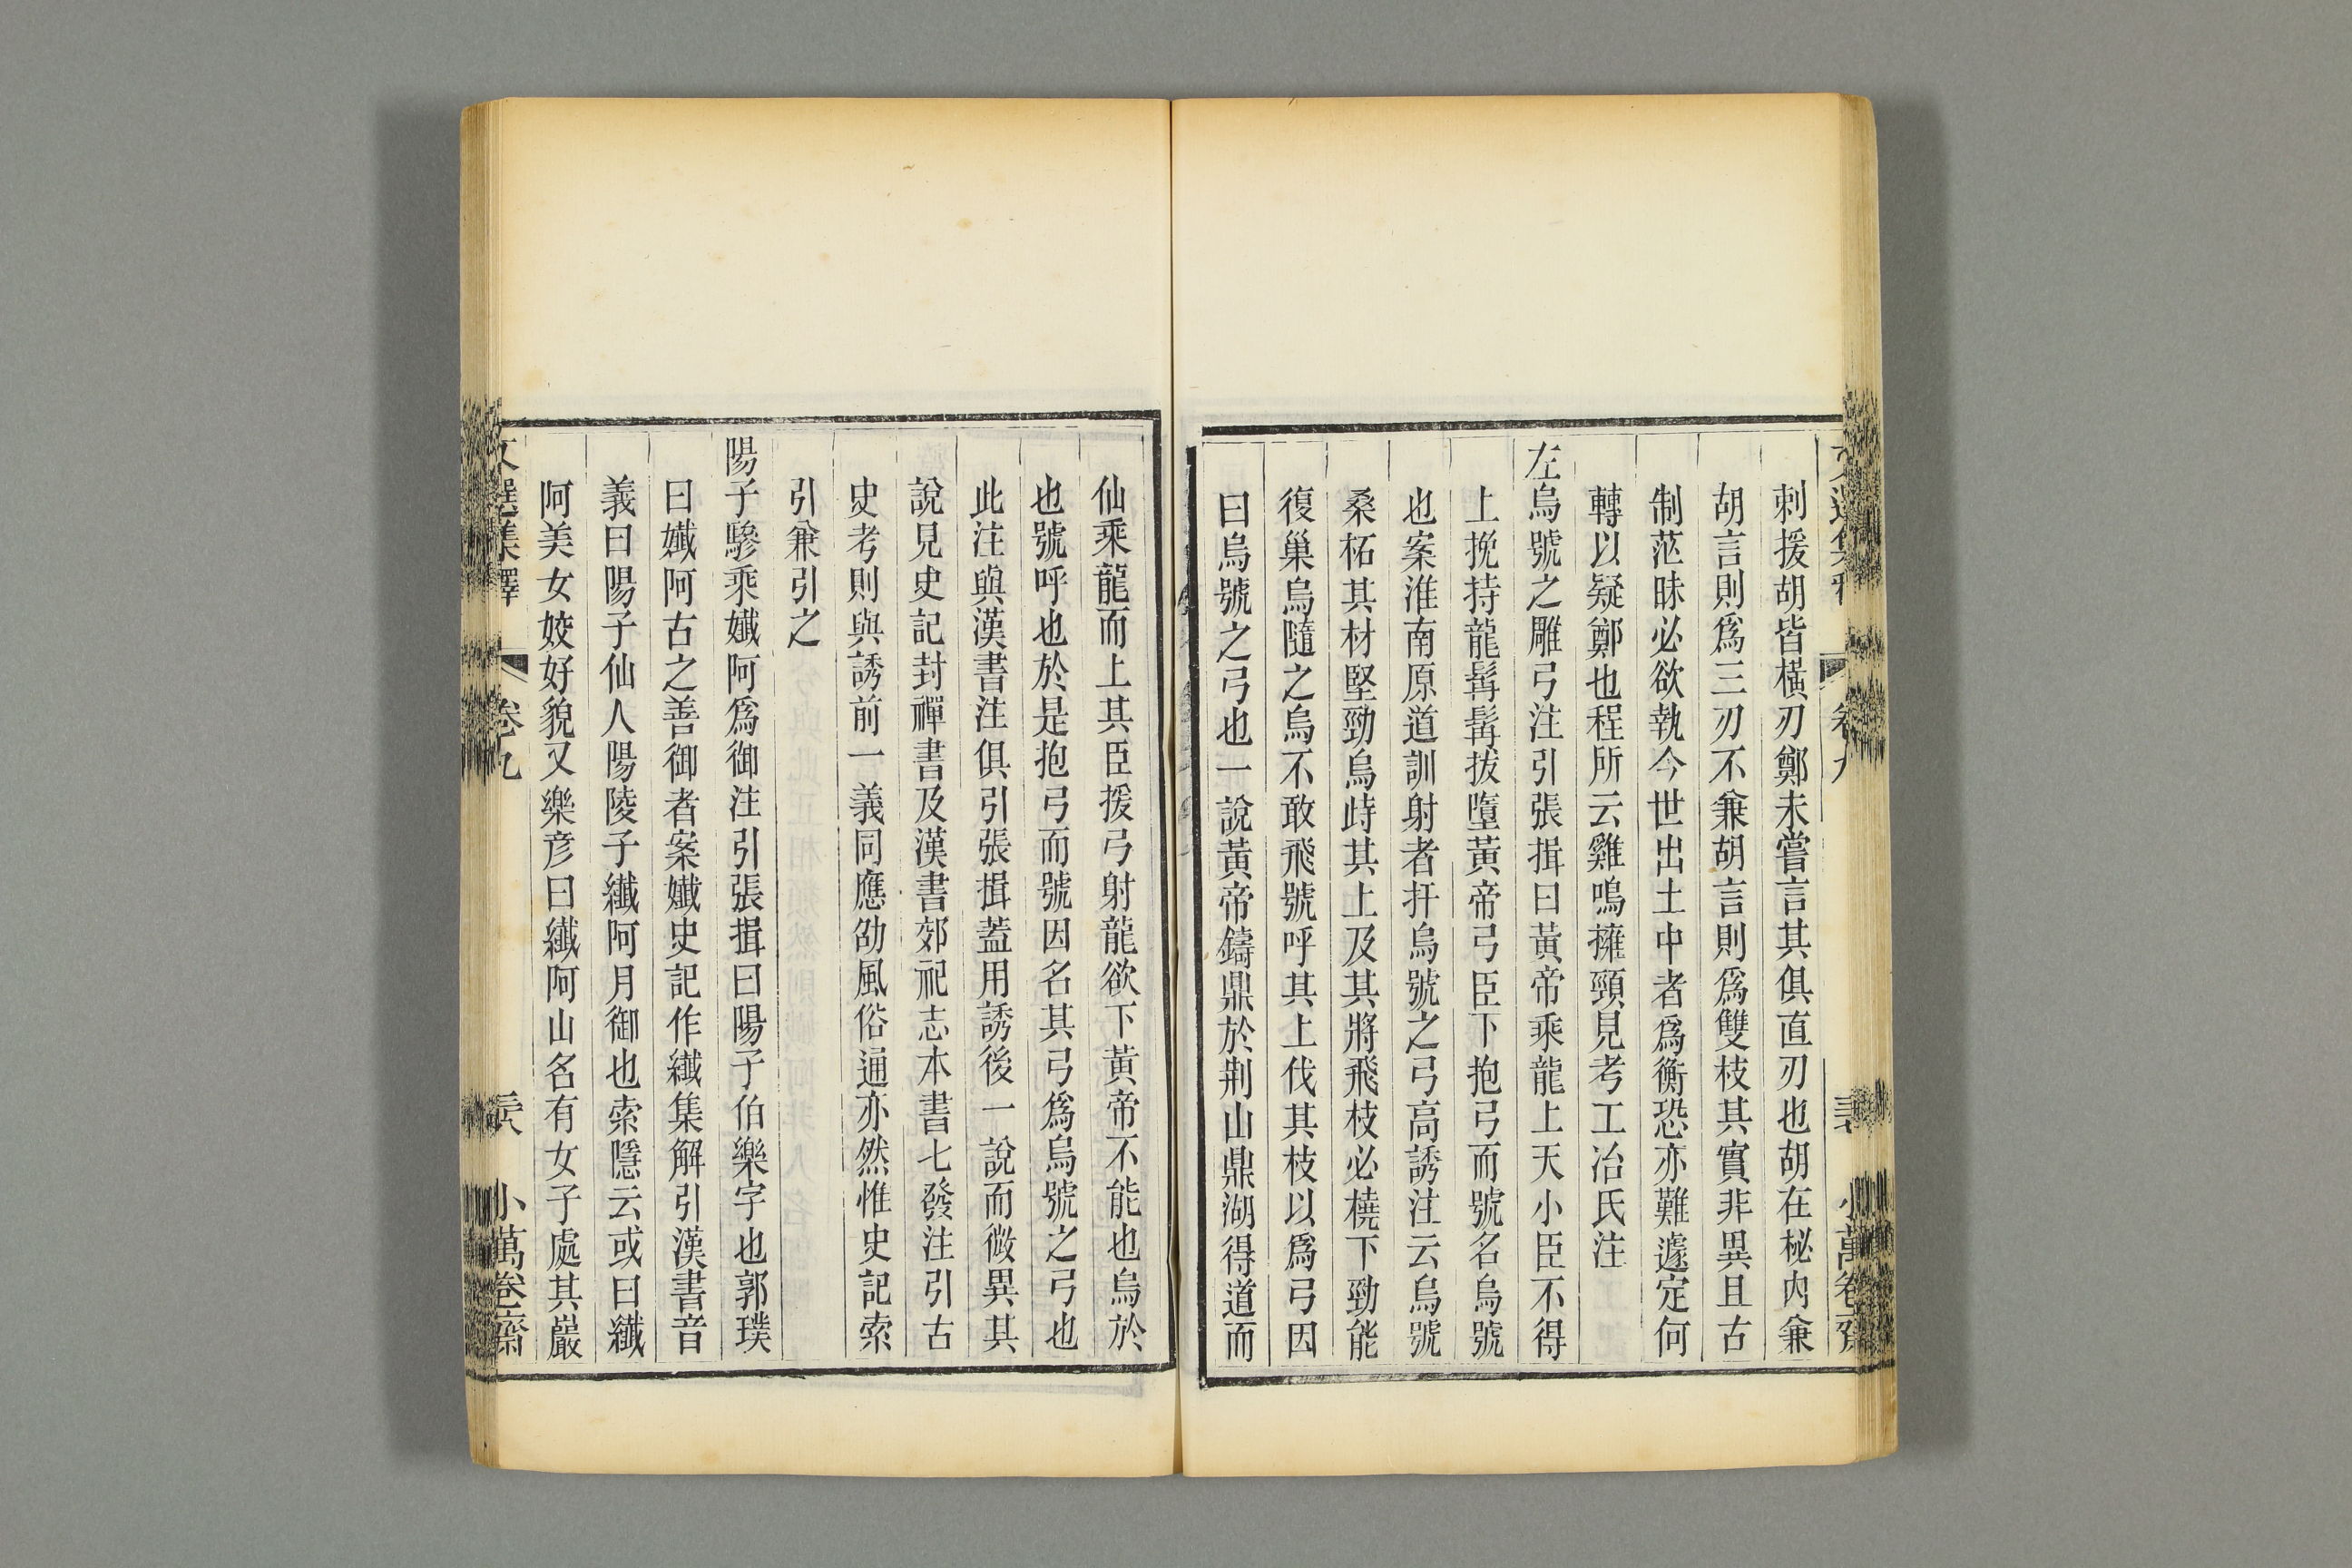 刺援胡皆橫刃鄭未嘗言其俱直刃也胡在柲内兼
胡言則爲三刃不兼胡言則爲雙枝其實非異且古
制茫昧必欲執今世出土中者爲衡恐亦難遽定何
轉以疑鄭也程所云雞鳴擁頸見考工冶氏注
左烏號之雕弓注引張揖曰黃帝乘龍上天小臣不得
上挽持龍髯髯拔墮黃帝弓臣下抱弓而號名烏號
也案淮南原道訓射者扜烏號之弓高誘注云烏號
桑柘其材堅勁烏峙其上及其將飛枝必橈下勁能
復巢烏隨之烏不敢飛號呼其上伐其枝以爲弓因
曰烏號之弓也一說黃帝鑄鼎於荆山鼎湖得道而
仙乘龍而上其臣援弓射龍欲下黃帝不能也烏於
也號呼也於是抱弓而號因名其弓爲烏號之弓也
此注與漢書注俱引張揖蓋用誘後一說而微異其
說見史記封禪書及漢書郊祀志本書七發注引古
史考則與誘前一義同應劭風俗通亦然惟史記索
引兼引之
陽子驂乘孅阿爲御注引張揖曰陽子伯樂字也郭璞
曰孅阿古之善御者案孅史記作纖集解引漢書音
義曰陽子仙人陽陵子纖阿月御也索隱云或曰纖
阿美女姣好貌又樂彦曰纖阿山名有女子處其巖
文選集釋 卷九 小萬卷齋